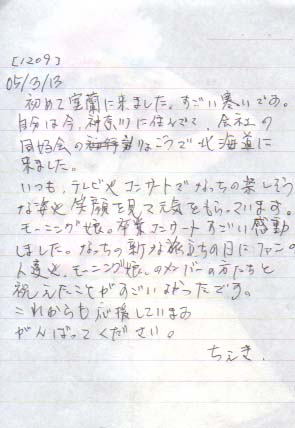 [1209]
05/3/13
初めて室蘭に来ました。すごい寒いです。
自分は今、神奈川に住んでて、会社の
同好会の りょこうで北海道に
来ました。
いつも、テレビやコンサートでなっちの楽しそう
な姿や笑顔を見て元気をもらっています。
モーニング娘。卒業コンサートすごい感動
しました。なっちの新たな旅立ちの日にファンの
人達やモーニング娘。のメンバーの方たちと
祝えたことがすごいよかったです。
これからも応援しています
がんばってください。
ちえき.